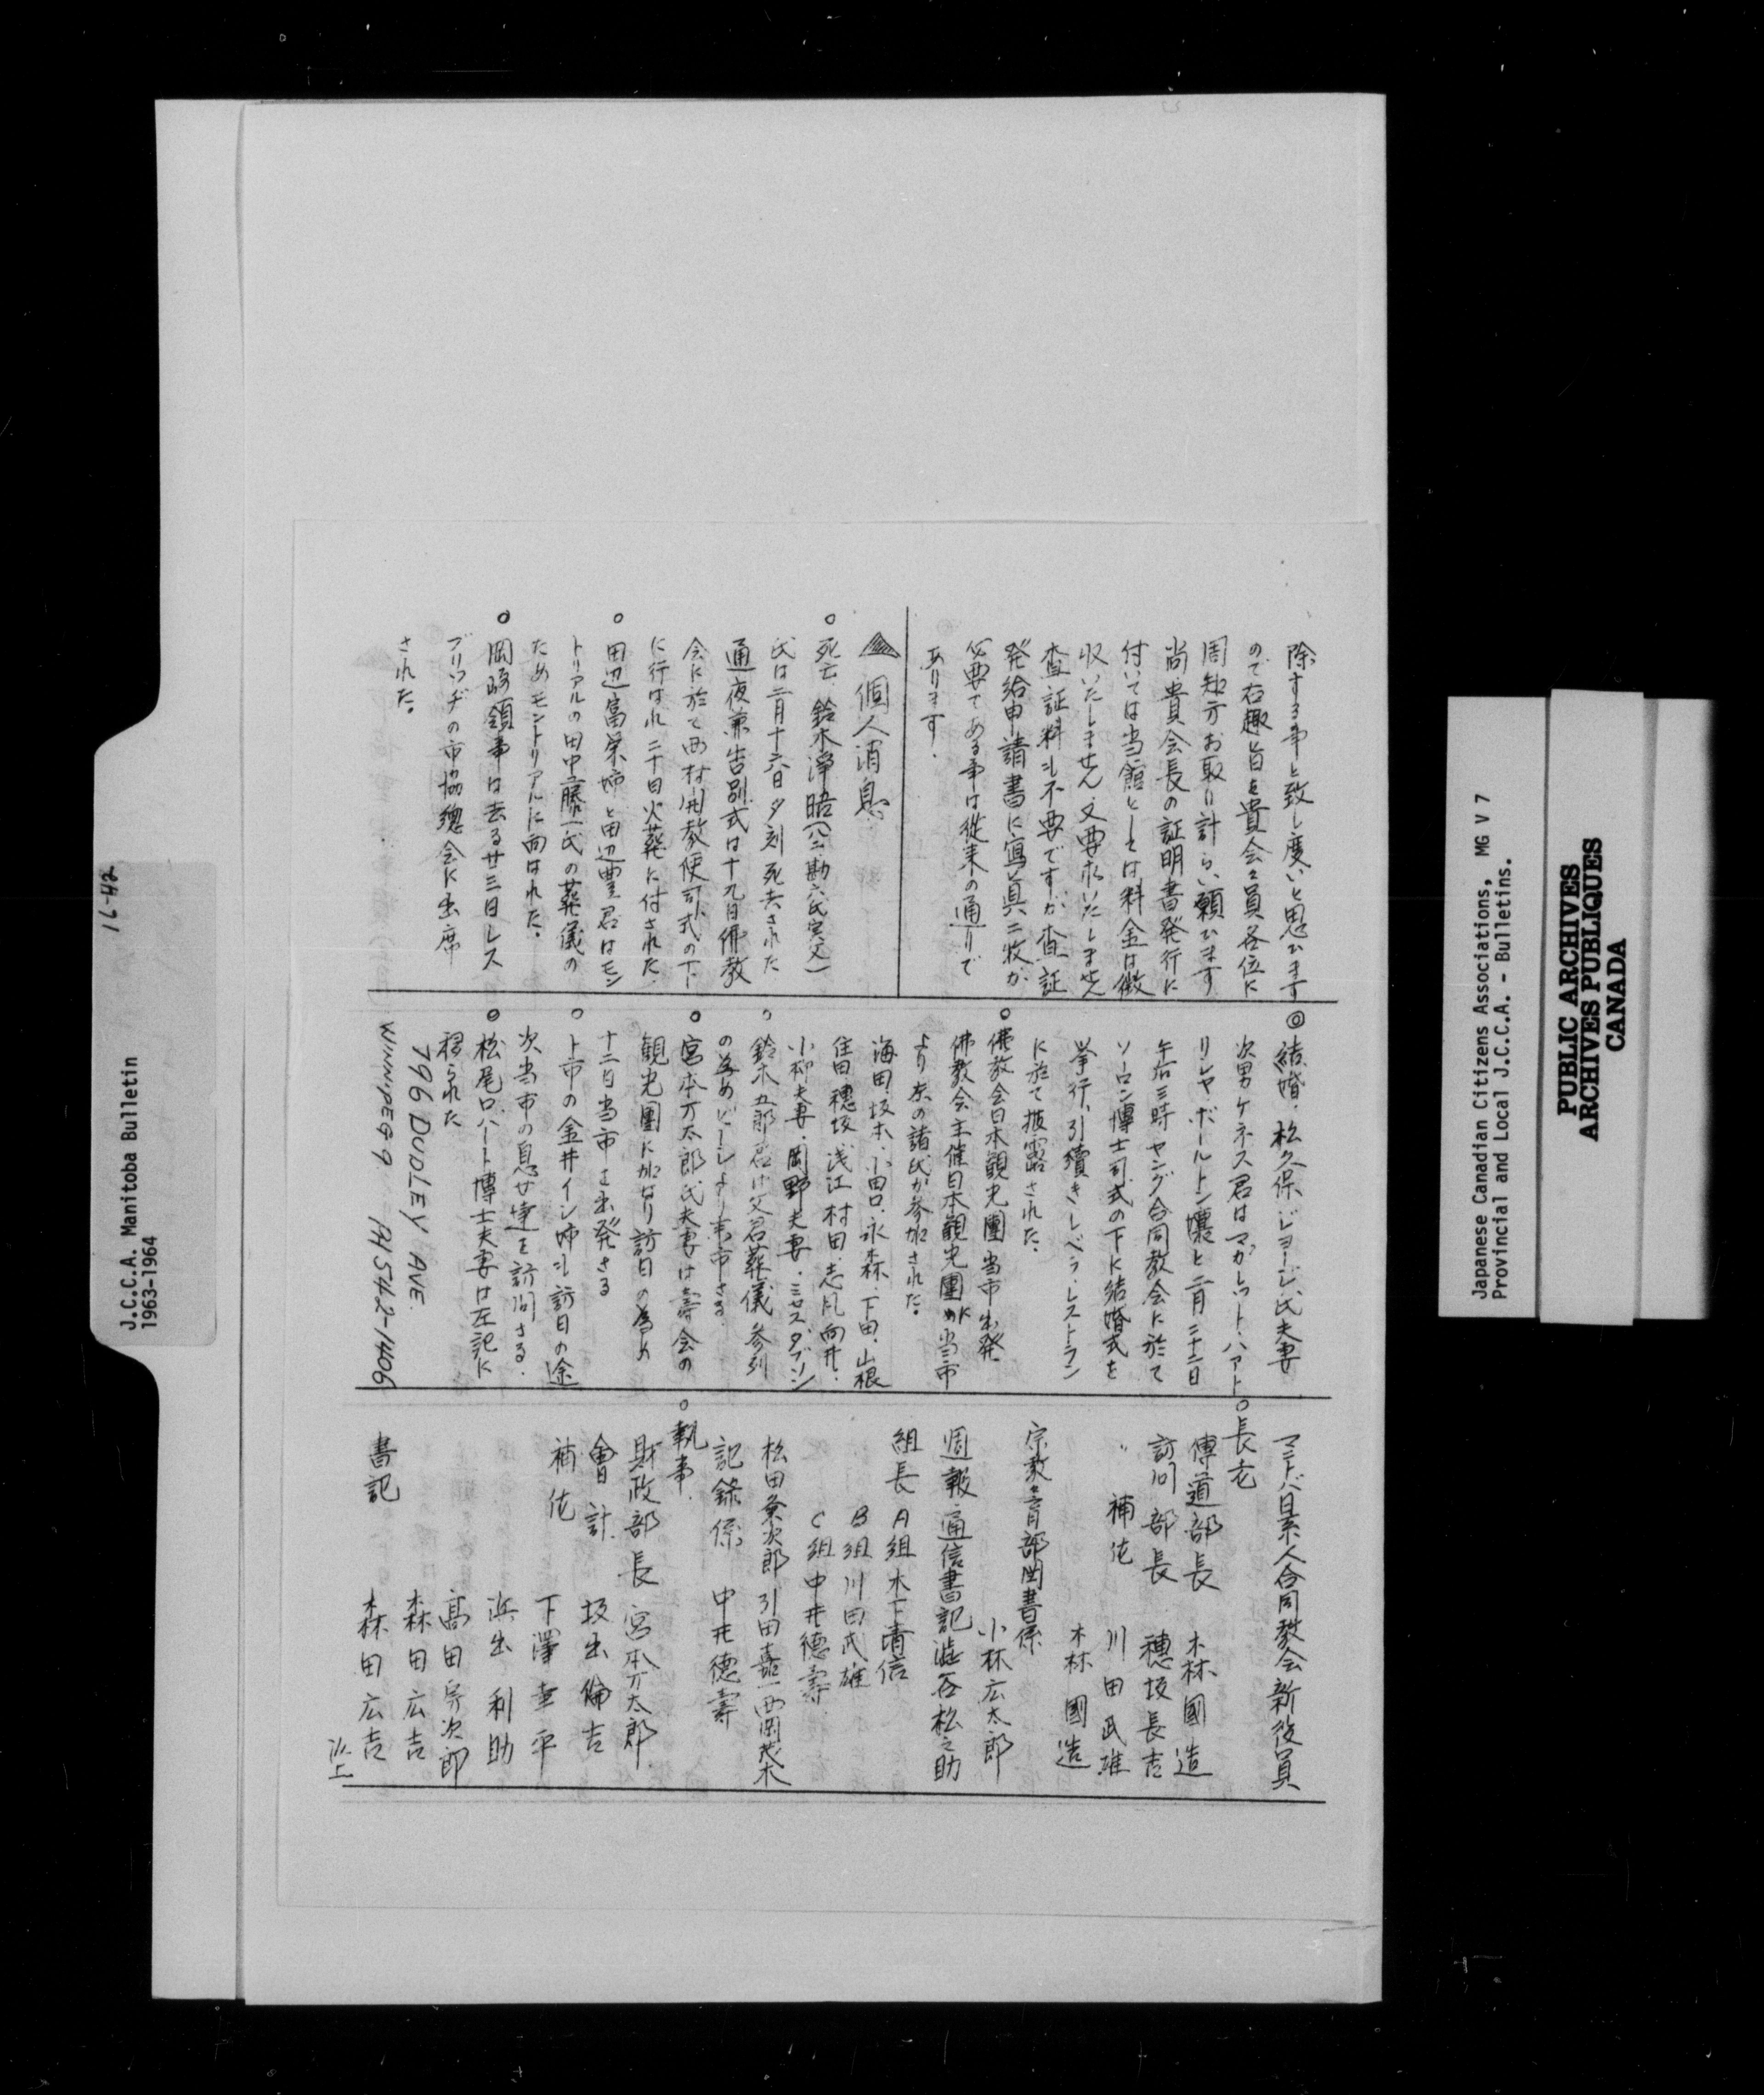 除する事と致し度いと思ひます
ので右趣旨を貴会々員各位に
周知方お取り計らい願ひます
尚貴会長の証明書発行に
付いては当館としては料金は徴
収いたしません、又要求いたしません
査証料も不要ですが査証
発給申請書に寫真二枚が
必要である事は従来の通りで
あります.
個人消息
○死亡 鈴木淨晤(勘六氏実父)
氏は二月十六日夕刻死去された
通夜兼告別式は十九日佛教
会に於て西村開教使司式の下
に行はれ二十日火葬に付された.
○田辺富栄姉と田辺豊君はモン
トリアルの田中藤一氏の葬儀の
ためモントリアルに向はれた.
○岡崎領事は去る廿三日レス
ブリッヂの市協總会に出席
された.
◎結婚. 松久保ジョージ氏夫妻
次男ケネス君はマガレット・ハアト
リシヤ・ボールトン孃と二月二十二日
午后三時ヤング合同教会に於て
ソーロン博士司式の下に結婚式を
挙行、引續きレベラ・レストラン
に於て披露された.
○佛教会日本観光團当市出発
佛教会主催日本観光團が当市
より左の諸氏が参加された.
海田、坂本、小田口、永森、下田、山根
住田、穗坂、浅江、村田、志風、向井.
小柳夫妻、岡野夫妻、ミセスダブソン
○鈴木五郎君は父君葬儀参列
の為めビーシーより来市さる
○宮本万太郎氏夫妻は壽会の
観光團に加はり訪日の為め
十二日当市を出発さる
○ト市の金井イン姉も訪日の途
次当市の息女達を訪問さる.
○松尾ロバート博士夫妻は左記に
移られた
796 DUDLEY AVE.
WINNIPEG 9 PH 542-1406
マニトバ日系人合同教会新役員
○長老
傳道部長 森國造
訪問部長 穗坂長吉
〃 補佐 川田武雄
森國造
宗教教育部図書係
小林広太郎
週報通信書記 澁谷松之助
組長 A組 木下清信
B組 川田武雄
C組 中井德壽
松田粂次郎 引田嘉一 西岡茂木
記錄係 中井德壽
○執事.
財政部長 宮本万太郎
會計 坂出倫吉
補佐 下澤幸平
浜出利助
髙田房次郎
森田広吉
書記 森田広吉
以上
16-42
J.C.C.A. Manitoba Bulletin
1963-1964
Japanese Canadian Citizens Associations, MG V 7
Provincial and Local J.C.C.A. - Bulletins.
PUBLIC ARCHIVES
ARCHIVES PUBLIQUES
CANADA